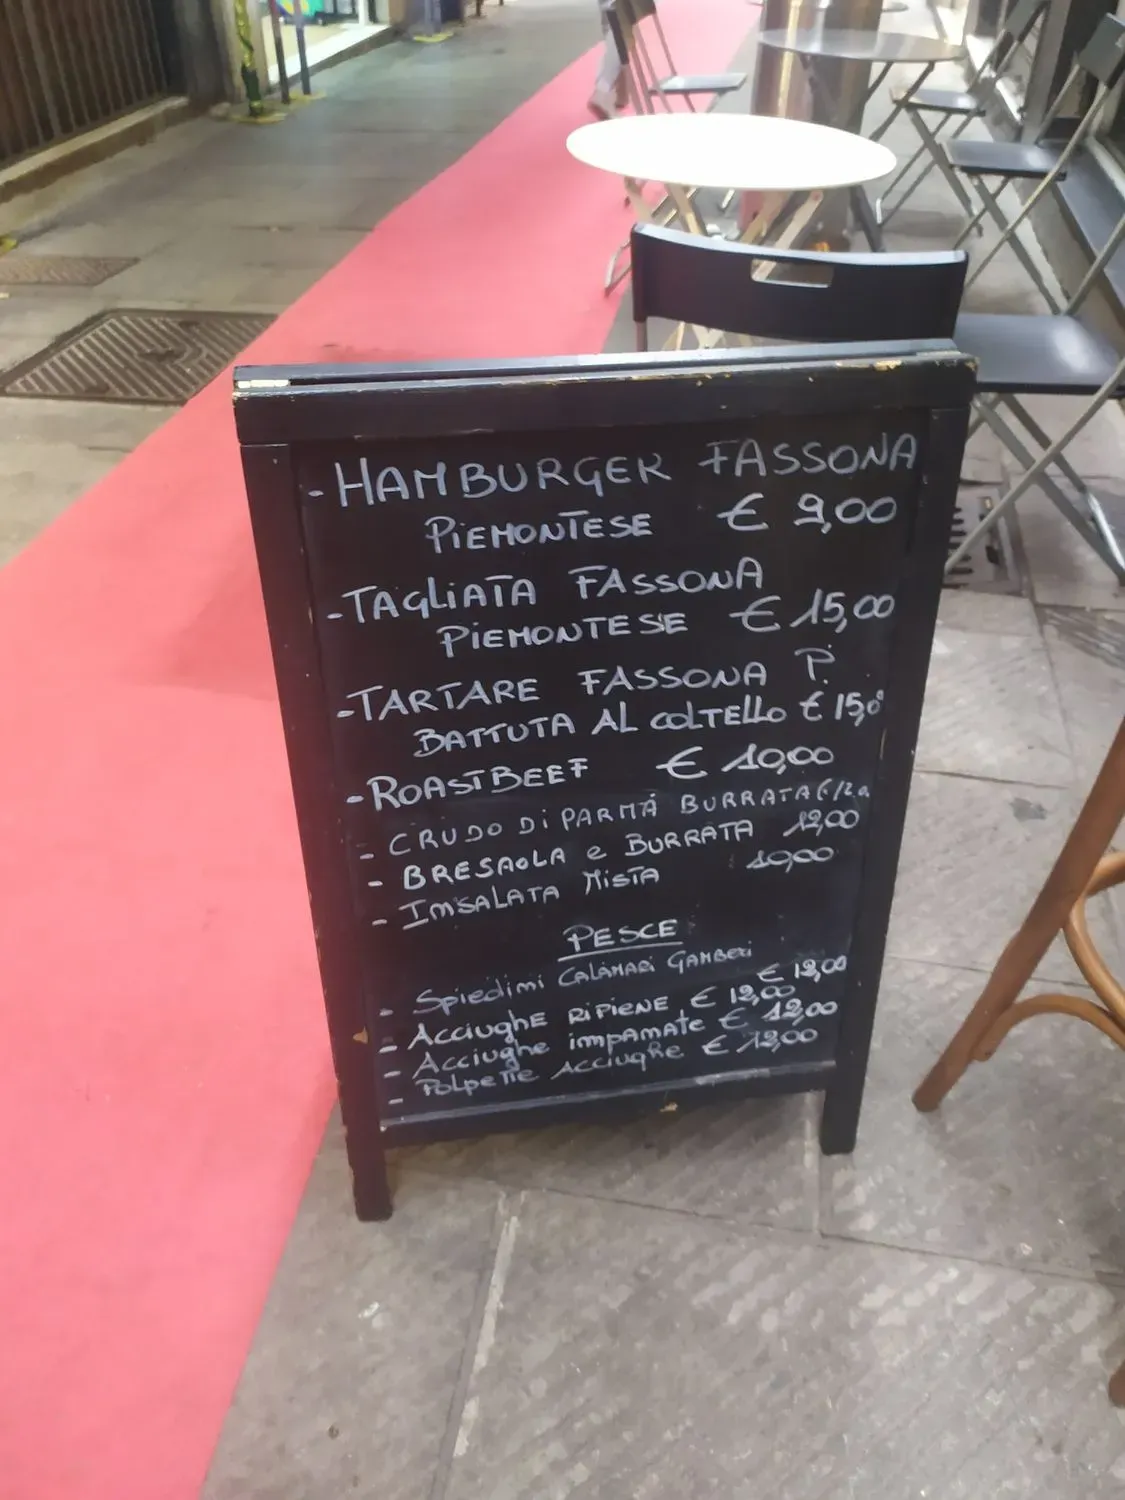 - HAMBURGER FASSONA
PIEMONTESE € 9,00
- TAGLIATA FASSONA
PIEMONTESE € 15,00
- TARTARE FASSONA P.
BATTUTA AL COLTELLO € 15,0
- ROASTBEEF € 10,00
- CRUDO Di PARMA BURRATA €12
- BRESAOLA e BURRATA 12,00
- IMSALATA MISTA 10,00
PESCE
- Spiedimi CALAMARi GAMBERi
€ 12,00
- ACCiughE RiPiENE € 12,00
- Acciughe impAMATE € 12,00
- POLpETTE ACCiughe € 12,00